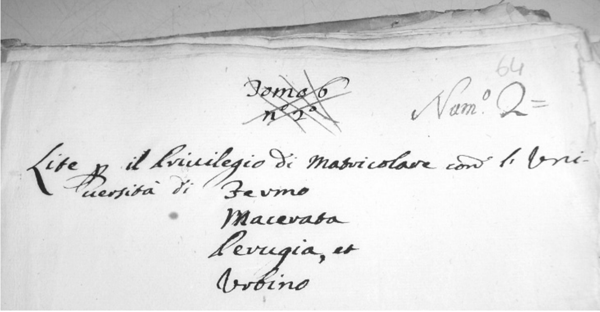 64
Tomo 6
n.º 2º
Num.º 2=
Lite p il Privilegio di Matricolare con l'Uni-
versità di Fermo
Macerata
Perugia, et
Urbino